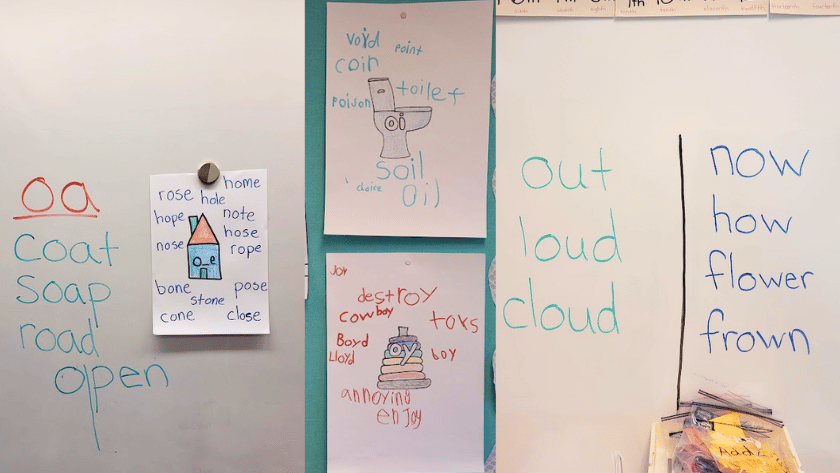 oa
coat
soap
road
open
home
rose
hole
hope
note
hose
nose
o_e
rope
bone
pose
stone
cone
close
void
point
coin
poison
toilet
oi
soil
choice
oil
Joy
destroy
cowboy
toys
Boyd
oy
Lloyd
boy
annoying
enjoy
out
loud
cloud
now
how
flower
frown